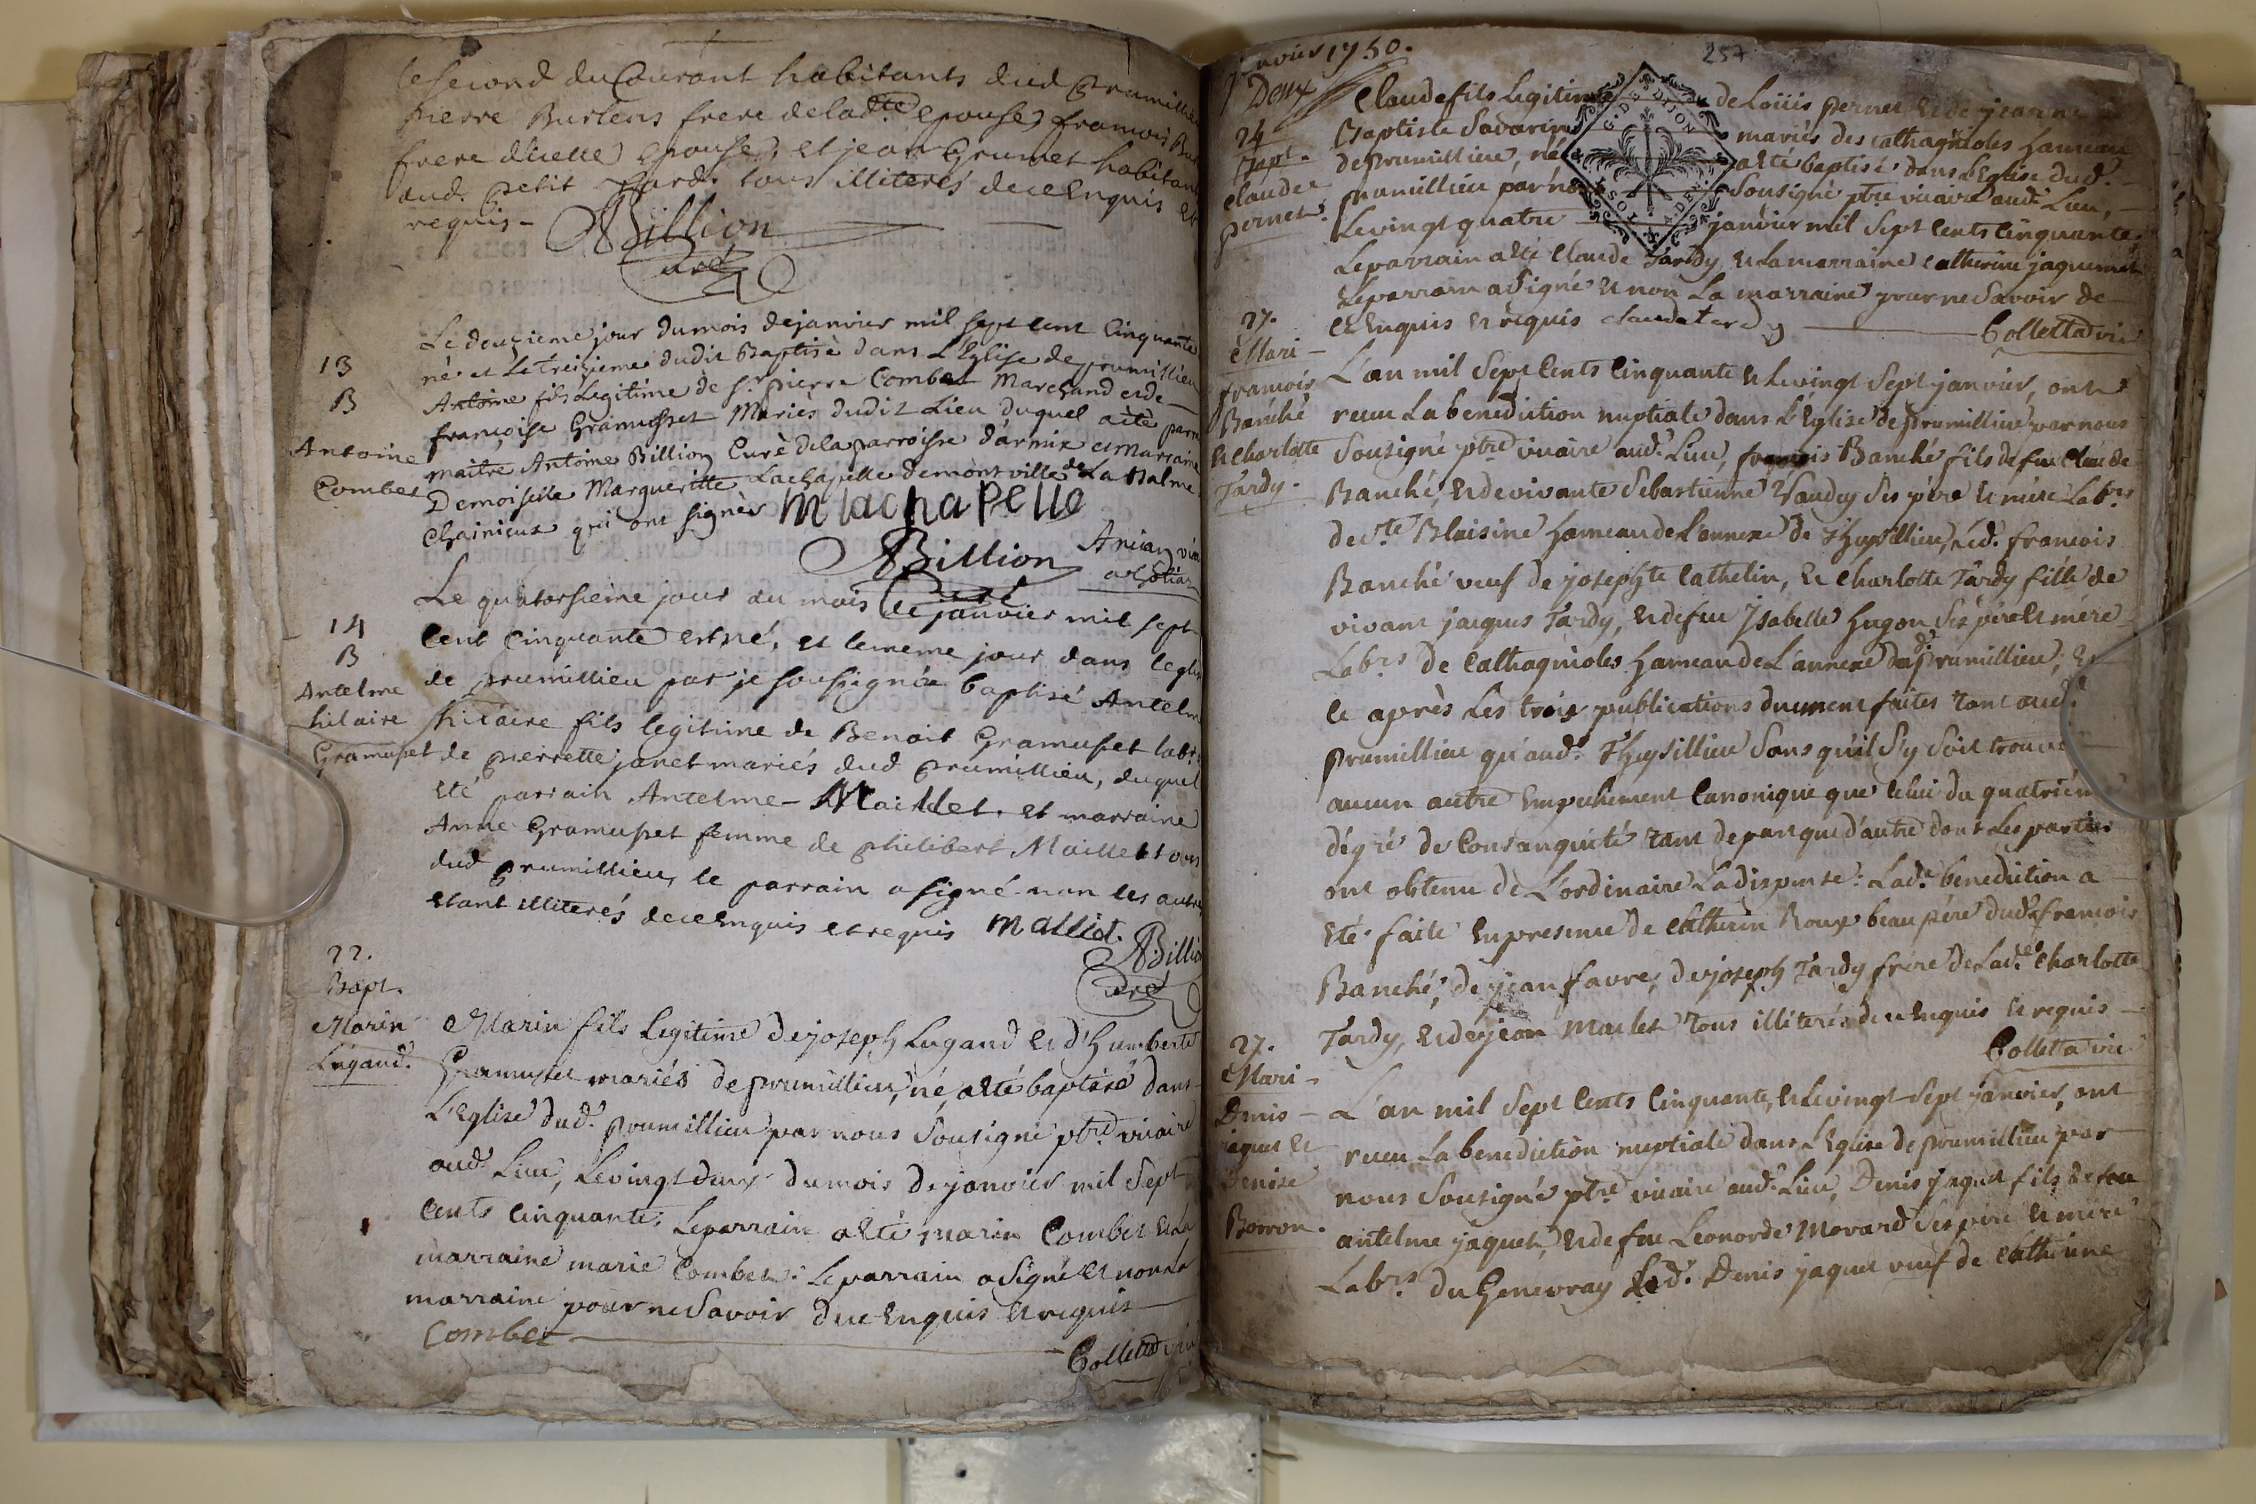 le second du Courant habitants dud Prumillieu
pierre Burlens frere de lad.te epouse, francois
frere d'icelle epouse, et jean Grumet habitant
aud. petit tous illiterés de ce Enquis et
requis -
Billion
curé
13
B
Antoine
Combet
Le douzieme jour du mois de janvier mil sept cent Cinquante
né et Le Treizieme dudit Baptisé dans L'Eglise de prumillieu
Antoine fils Legitime de s.r pierre Combet Marchand et de
françoise Gramusset Mariés dudit Lieu duquel a été parrain
maitre Antoine Billion Curé de la parroisse d'armix et Marraine
Demoiselle Margueritte Lachapelle demont ville de La Balme
Chainieux qui ont signér m lachapelle
Billion
curé
14
B
Antelme
hilaire
Gramuset
Le quatorsieme jour du mois de janvier mil sept
Cent Cinquante est né, et le meme jour dans leglise
de prumillieu par je soussigné baptisé Antelme
hilaire fils legitime de Benoit Gramuset lab.r
de pierrette janet mariés dud prumillieu, duquel
eté parrain Antelme - Maillet. et marraine
Anne Gramuset femme de philibert Maillet tous
dud prumillieu, le parrain a signé non les autres
etant illiterés de ce enquis et requis mallict.
Billion
curé
22.
Bapt.
Marin
Lugand.
Marin fils Legitime de joseph Lugand et d'humberte
Gramuset mariés de prumillieu, né, a eté baptisé dans
L'Eglise dud. prumillieu par nous Sousigné ptre vicaire
aud. Lieu, Le vingt deux du mois de janvier mil Sept
Cents Cinquante; Le parrain a eté marin Combet et La
marraine marie Combet: Le parrain a Signé et non La
marraine pour ne Savoir de ce Enquis et requis
Combet
Colletta vic
janvier 1750.
257
Deux
24
Bapt.
Claude
pernet.
Claude fils Legitime de Loüis pernet et de jeanne
Baptiste Savarin mariés des Cathagnoles hameau
de prumillieu, né a eté baptisé dans L'Eglise dud.
prumillieu par nous Sousigné ptre vicaire aud. Lieu,
Le vingt quatre janvier mil Sept Cents Cinquante
G. DE DIJON
Le parrain a eté Claude Tardy, et La marraine Catherine jaquemet
Le parrain a Signé et non La marraine pour ne Savoir de
ce Enquis et requis claude tardy
Colletta vic
27.
Mari -
françois
Banché
et Charlotte
Tardy.
L'an mil Sept Cents Cinquante et Le vingt Sept janvier, ont
recu La benediction nuptiale dans L'Eglise de prumillieu par nous
Sousigné ptre vicaire aud. Lieu, françois Banché fils de feu Claude
Banché, et de vivante Sebastienne Vaudey Ses père et mère Lab.rs
de S.te Blaisine hameau de L'annexe de Thuysillieu, led. françois
Banché veuf de josephte Cathelin, et Charlotte Tardy fille de
vivant jacques Tardy, et de feue Ysabelle hugon Ses père et mère
Lab.rs de Cathagnoles hameau de L'annexe dud. prumillieu, et
ce après Les trois publications duement faites tant aud.
prumillieu qu'aud. Thuysillieu Sans qu'il S'y Soit trouvé
aucun autre Empechement Canonique que Celui du quatrième
dégré de Consanguité tant de part que d'autre dont Les parties
ont obtenu de L'ordinaire La dispense: Lad.e benediction a
eté faite En presence de Catherin Roux beau père dud. françois
Banché, de jean favre, de joseph Tardy frère de Lad.e Charlotte
Tardy, et de jean Mailet tous illiterés de ce Enquis et requis
Colletta vic
27.
Mari -
Denis -
jaquet et
Denise
Borron.
L'an mil Sept Cents Cinquante, et Le vingt Sept janvier, ont
recu La benediction nuptiale dans L'Eglise de prumillieu par
nous Sousigné ptre vicaire aud. Lieu, Denis jaquet fils de feu
antelme jaquet, et de feue Leonorde Morard Ses père et mère
Lab.rs du Genevray Led. Denis jaquet veuf de Catherine